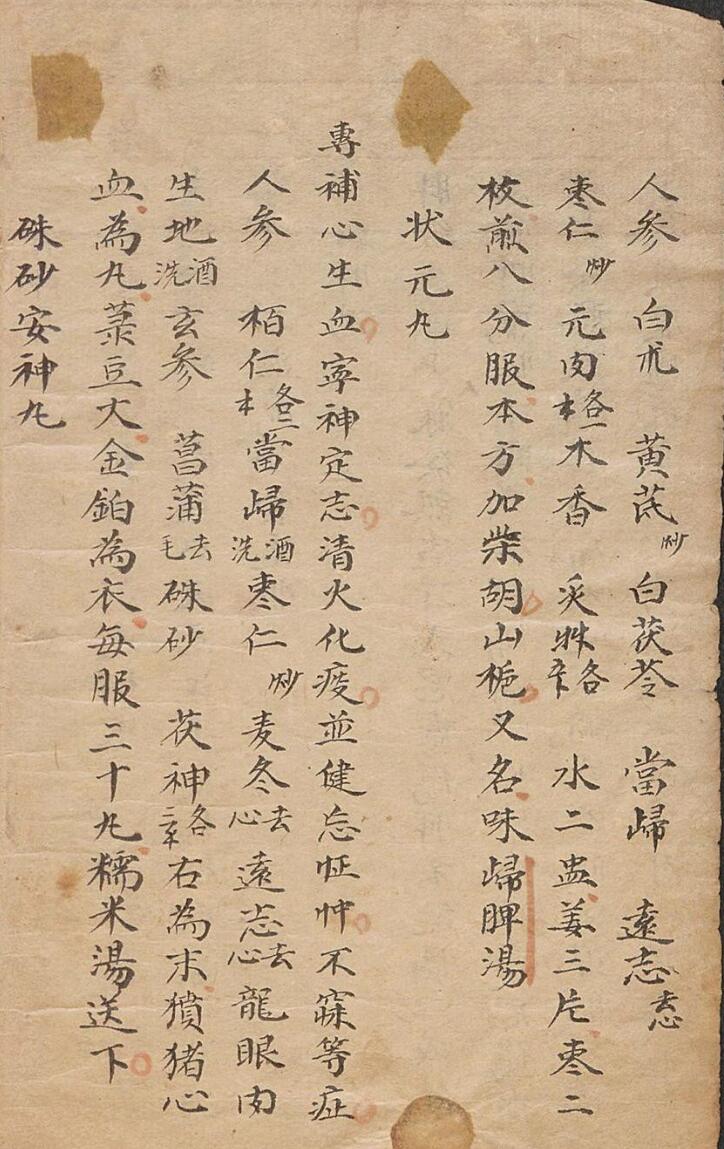 人參 白朮 黃芪炒 白茯苓 當歸 遠志去心
枣仁炒 元肉各一本 木香 炙艸各 水二盅姜三片枣二
枚煎八分服本方加柴胡山梔又名味歸脾湯
状元丸
專補心生血寧神定志清火化痰並健忘怔忡不寐等症
人參 栢仁各二本 當歸酒洗 枣仁炒 麦冬去心 遠志去心 龍眼肉
生地酒洗 玄參 菖蒲去毛 硃砂 茯神各 右為末㹀猪心
血為丸菉豆大金鉑為衣每服三十丸糯米湯送下
硃砂安神丸